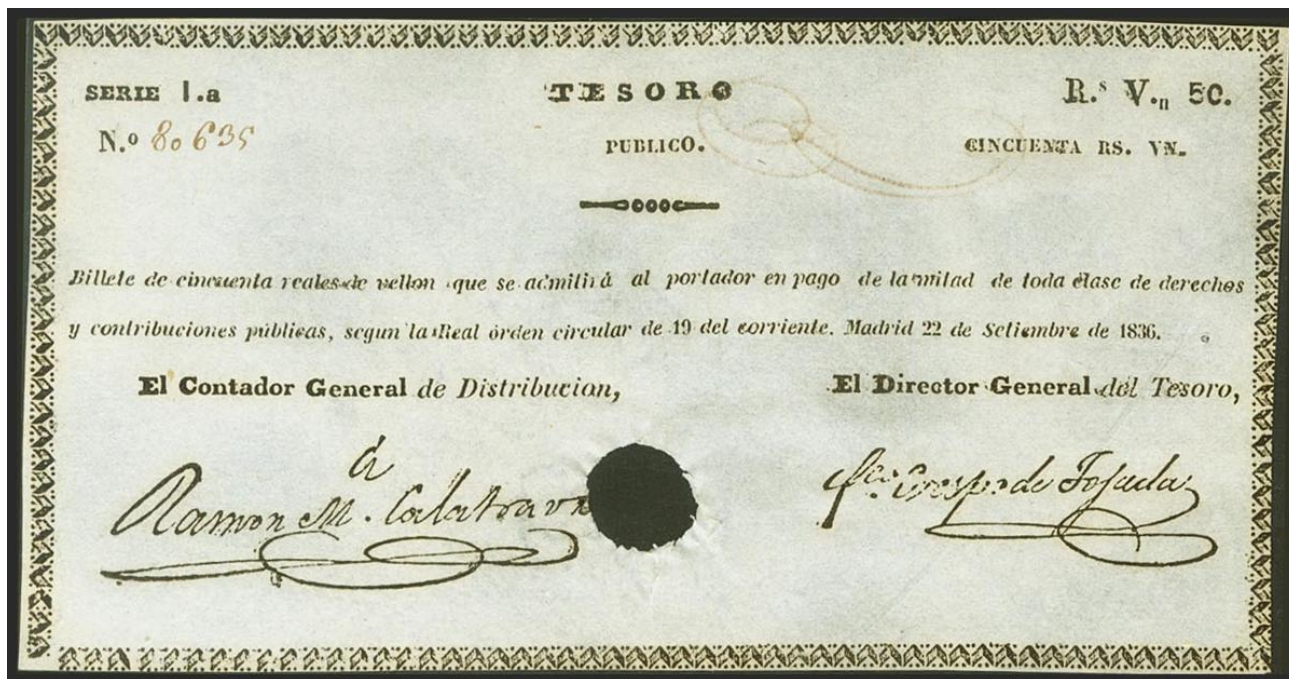 SERIE 1.a
TESORO
R.s V.n 50.
N.o 80635
PUBLICO.
CINCUENTA RS. VN.
Billete de cincuenta reales de vellon que se admitirá al portador en pago de la mitad de toda clase de derechos
y contribuciones públicas, segun la Real órden circular de 19 del corriente. Madrid 22 de Setiembre de 1836.
El Contador General de Distribucion,
El Director General del Tesoro,
Ramon M.a Calatrava
Fco. Crespo de Tejada